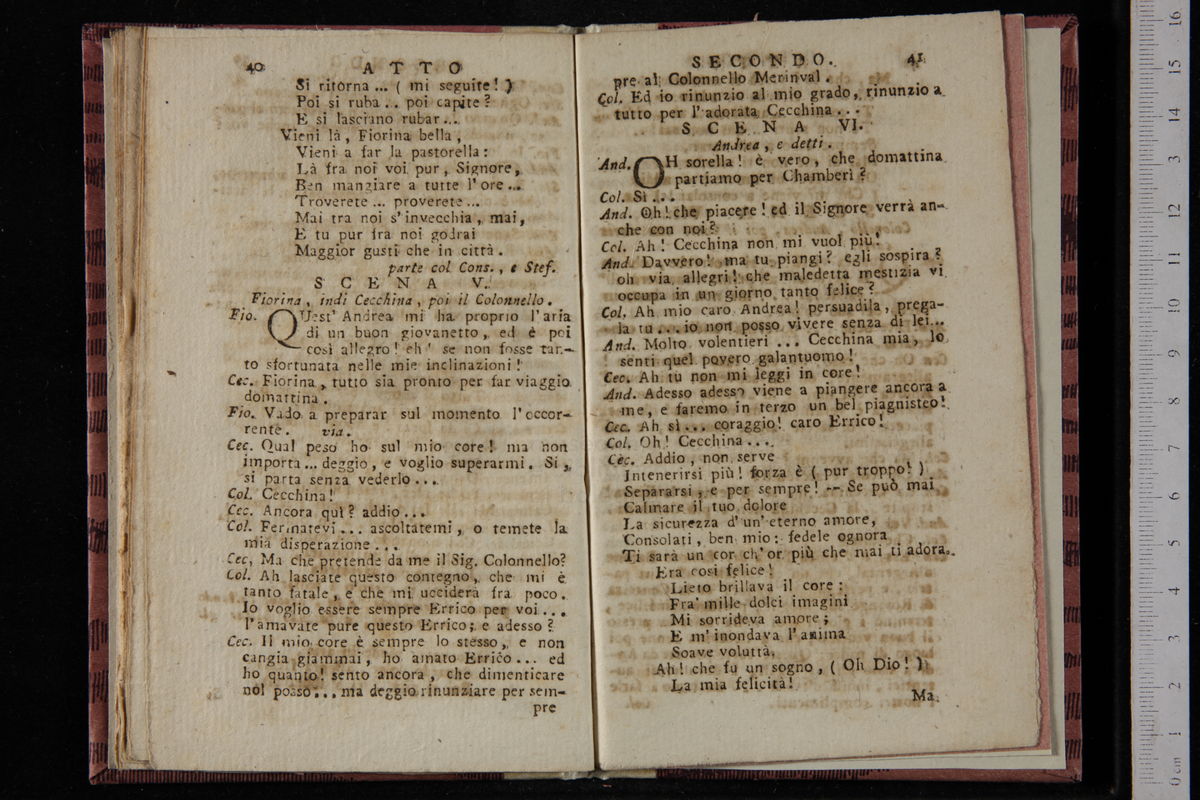 40 ATTO
Si ritorna ... ( mi seguite! )
Poi si ruba .. poi capite ?
E si lasciano rubar ...
Vieni là , Fiorina bella ,
Vieni a far la pastorella :
Là fra noi voi pur , Signore ,
Ben mangiare a tutte l' ore ...
Troverete ... proverete ...
Mai tra noi s' invecchia , mai,
E tu pur fra noi godrai
Maggior gusti che in città .
parte col Cons. , e Stef.
SCENA V.
Fiorina , indi Cecchina , poi il Colonnello .
Fio. QUest' Andrea mi ha proprio l' aria
di un buon giovanetto , ed è poi
così allegro ! eh ! se non fosse tan-
to sfortunata nelle mie inclinazioni !
Cec. Fiorina , tutto sia pronto per far viaggio
domattina .
Fio. Vado a preparar sul momento l' occor-
rente . via .
Cec. Qual peso ho sul mio core ! ma non
importa ... deggio , e voglio superarmi . Si ,
si parta senza vederlo ...
Col. Cecchina !
Cec. Ancora quì ? addio ...
Col. Fermatevi ... ascoltatemi , o temete la
mia disperazione ...
Cec, Ma che pretende da me il Sig. Colonnello?
Col. Ah lasciate questo contegno , che mi è
tanto fatale , e che mi ucciderà fra poco .
Io voglio essere sempre Errico per voi ...
l' amavate pure questo Errico ; e adesso ?
Cec. Il mio core è sempre lo stesso , e non
cangia giammai , ho amato Errico ... ed
ho quanto! sento ancora , che dimenticare
nol posso ... ma deggio rinunziare per sem-
pre
SECONDO. 41
pre al Colonnello Merinval .
Col. Ed io rinunzio al mio grado , rinunzio a
tutto per l' adorata Cecchina ...
SCENA VI.
Andrea , e detti .
And. OH sorella ! è vero , che domattina
partiamo per Chamberì ?
Col. Sì ...
And. Oh ! che piacere ! ed il Signore verrà an-
che con noi ?
Col. Ah ! Cecchina non mi vuol più !
And. Davvero ! ma tu piangi ? egli sospira ?
oh via allegri ! che maledetta mestizia vi
occupa in un giorno tanto felice ?
Col. Ah mio caro Andrea ! persuadila , prega-
la tu ... io non posso vivere senza di lei ...
And. Molto volentieri ... Cecchina mia , lo
senti quel povero galantuomo !
Cec. Ah tu non mi leggi in core !
And. Adesso adesso viene a piangere ancora a
me , e faremo in terzo un bel piagnisteo !
Cec. Ah sì ... coraggio ! caro Errico !
Col. Oh ! Cecchina ...
Cec. Addio , non serve
Intenerirsi più ! forza è ( pur troppo ! )
Separarsi , e per sempre ! -- Se può mai
Calmare il tuo dolore
La sicurezza d' un' eterno amore,
Consolati , ben mio : fedele ognora
Ti sarà un cor ch' or più che mai ti adora .
Era così felice !
Lieto brillava il core ;
Fra' mille dolci imagini
Mi sorrideva amore ;
E m' inondava l' anima
Soave voluttà ,
Ah ! che fu un sogno , ( Oh Dio ! )
La mia felicità !
Ma
0 cm 1 2 3 4 5 6 7 8 9 10 11 12 13 14 15 16